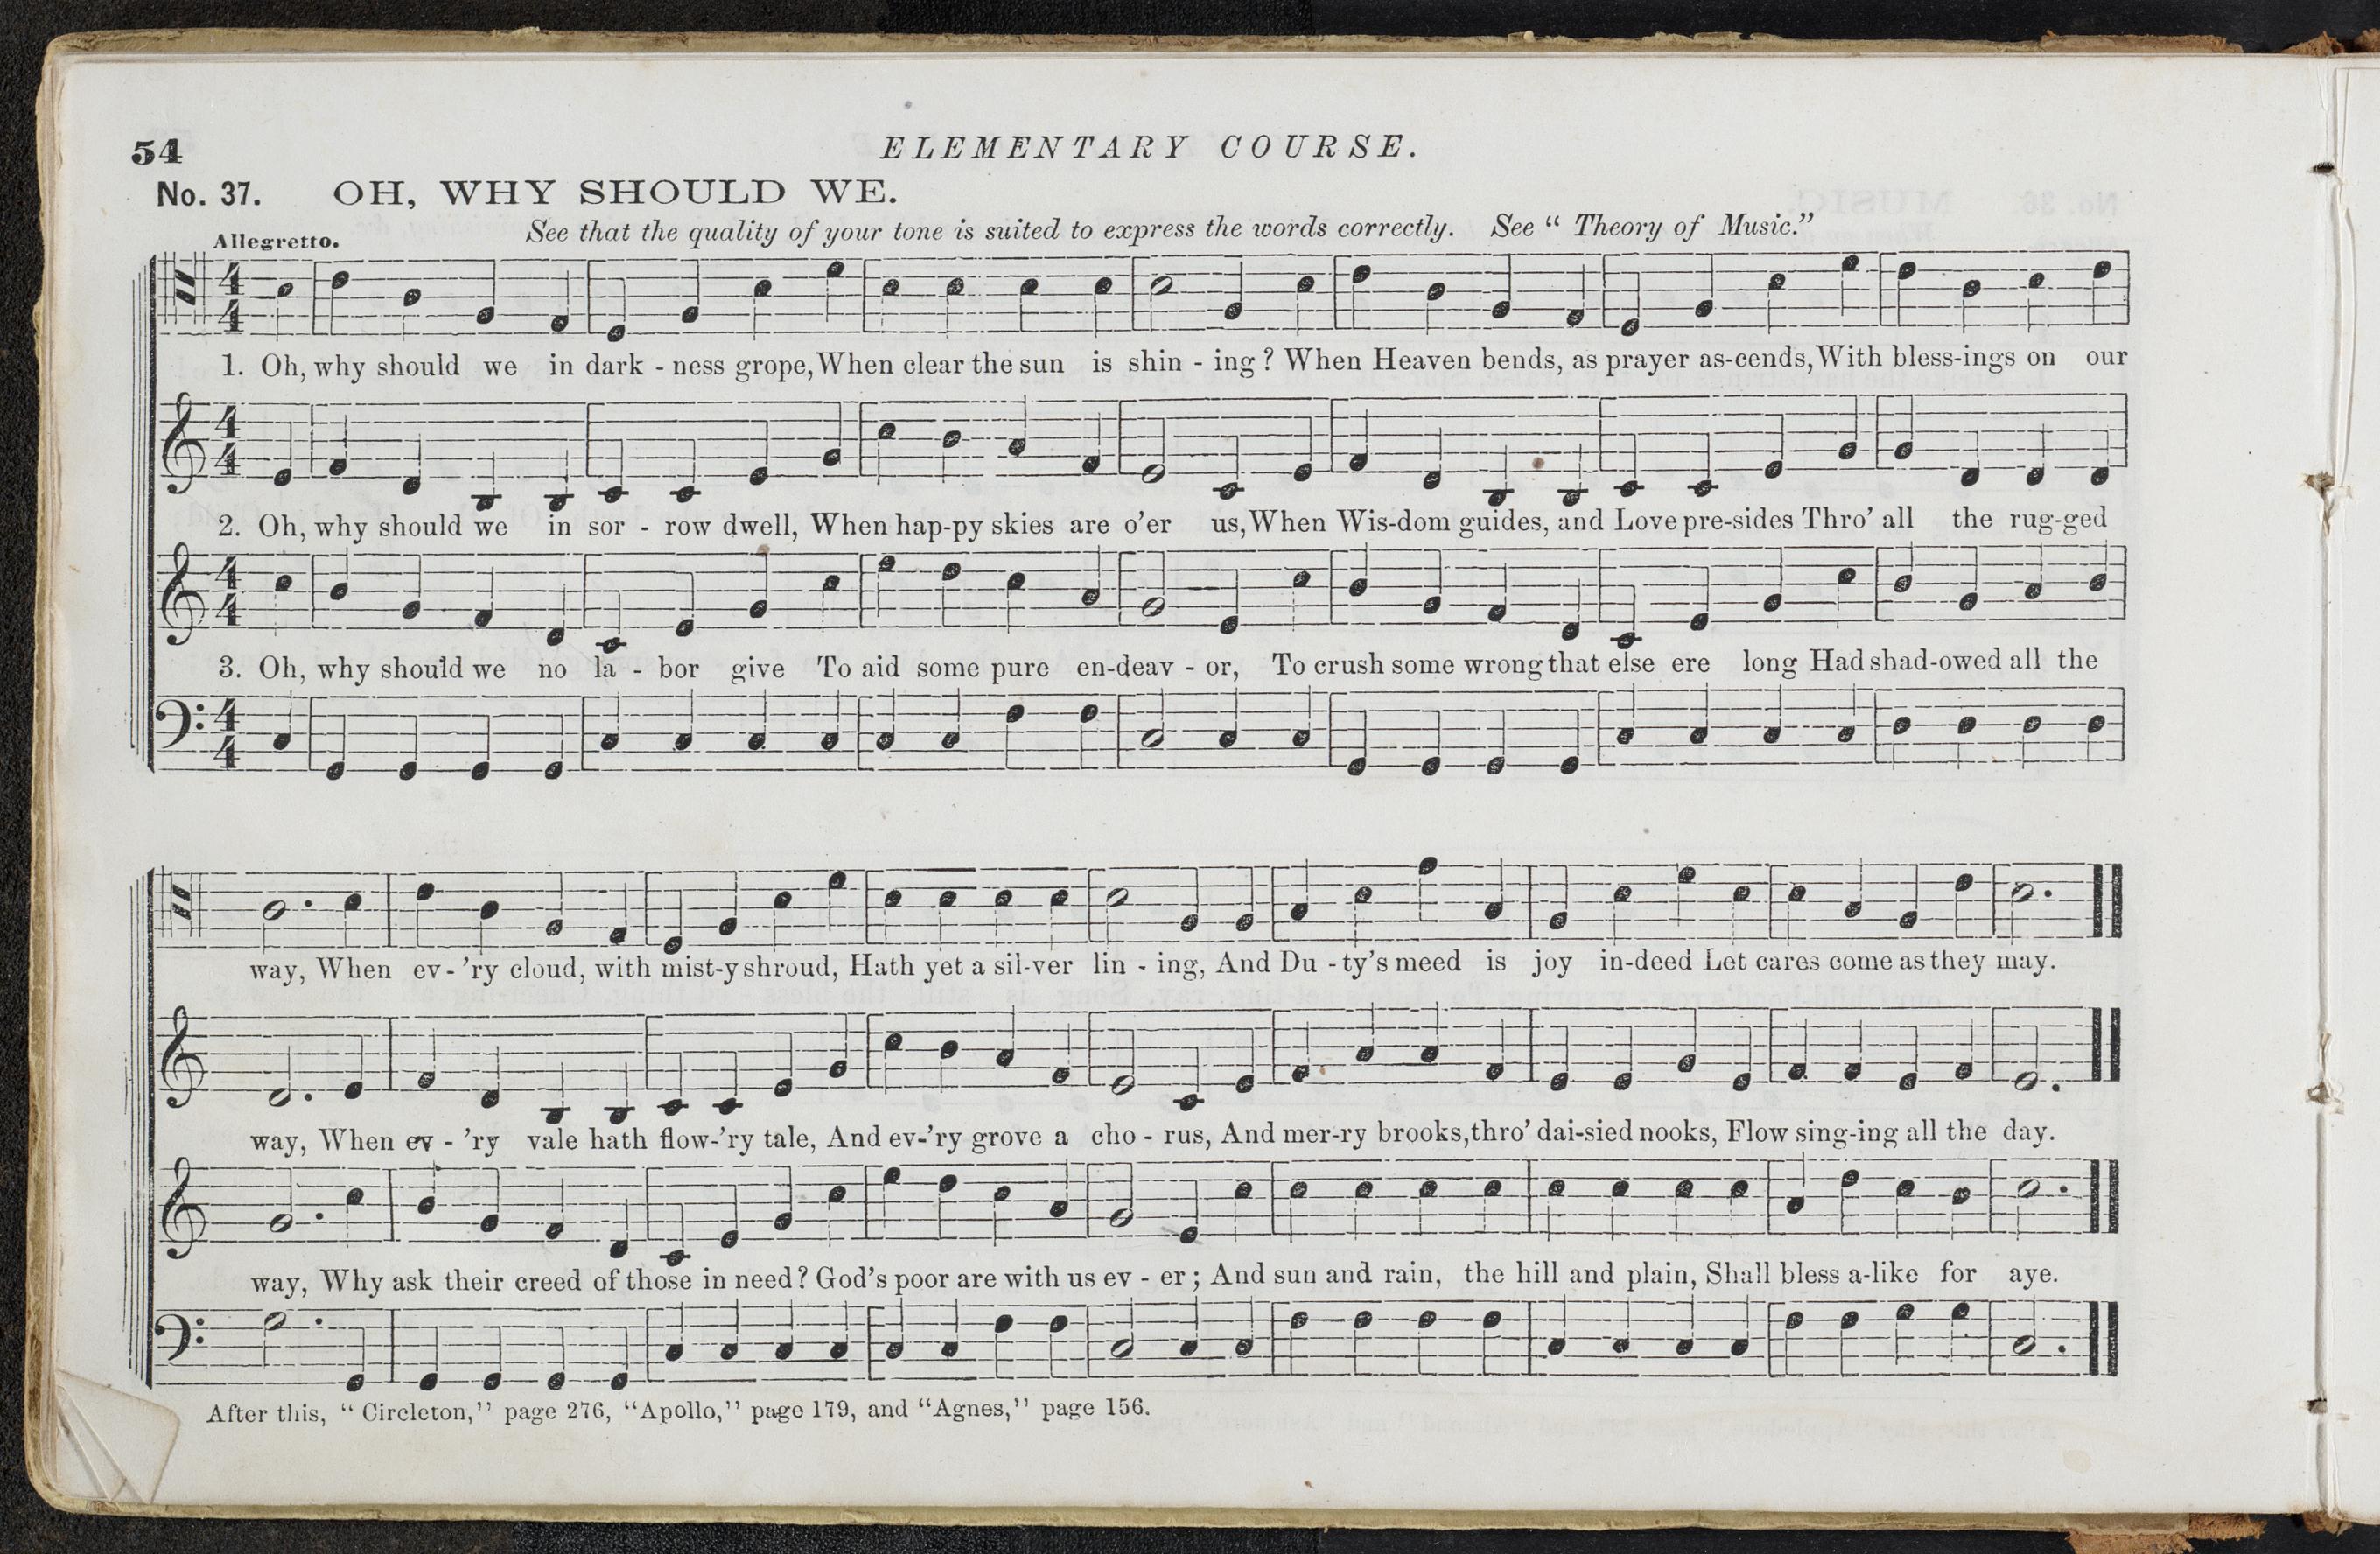 54
ELEMENTARY COURSE.
No. 37. OH, WHY SHOULD WE.
See that the quality of your tone is suited to express the words correctly. See “ Theory of Music.”
Allegretto.
4
4
1. Oh, why should we in dark - ness grope, When clear the sun is shin - ing ? When Heaven bends, as prayer as-cends, With bless-ings on our
4
4
2. Oh, why should we in sor - row dwell, When hap-py skies are o’er us, When Wis-dom guides, and Love pre-sides Thro’ all the rug-ged
4
4
3. Oh, why should we no la - bor give To aid some pure en-deav - or, To crush some wrong that else ere long Had shad-owed all the
4
4
way, When ev - ’ry cloud, with mist-y shroud, Hath yet a sil-ver lin - ing, And Du - ty’s meed is joy in-deed Let cares come as they may.
way, When ev - ’ry vale hath flow-’ry tale, And ev-’ry grove a cho - rus, And mer-ry brooks, thro’ dai-sied nooks, Flow sing-ing all the day.
way, Why ask their creed of those in need ? God’s poor are with us ev - er ; And sun and rain, the hill and plain, Shall bless a-like for aye.
After this, “ Circleton,” page 276, “Apollo,” page 179, and “Agnes,” page 156.